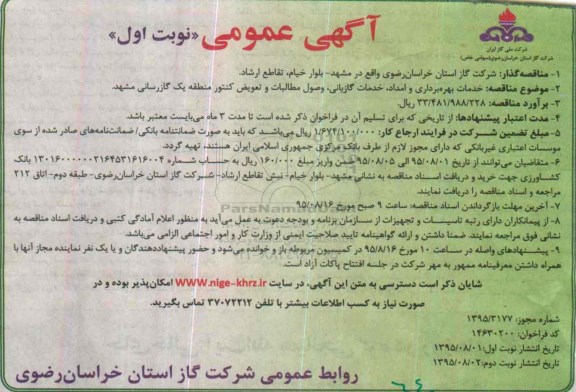 آگهی عمومی «نوبت اول»
شرکت ملی گاز ایران
شرکت گاز استان خراسان‌رضوی(سهامی خاص)
۱- مناقصه‌گذار: شرکت گاز استان خراسان‌رضوی واقع در مشهد- بلوار خیام، تقاطع ارشاد.
۲- موضوع مناقصه: خدمات بهره‌برداری و امداد، خدمات گازبانی، وصول مطالبات و تعویض کنتور منطقه یک گازرسانی مشهد.
۳- برآورد مناقصه: ۳۳/۴۸۱/۹۸۸/۲۲۸ ریال.
۴- مدت اعتبار پیشنهادها: از تاریخی که برای تسلیم آن در فراخوان ذکر شده است تا مدت ۳ ماه می‌بایست معتبر باشد.
۵- مبلغ تضمین شرکت در فرایند ارجاع کار: ۱/۶۷۴/۱۰۰/۰۰۰ ریال می‌باشد که باید به صورت ضمانتنامه بانکی/ ضمانت‌نامه‌های صادر شده از سوی
موسسات اعتباری غیربانکی که دارای مجوز لازم از طرف بانک مرکزی جمهوری اسلامی ایران هستند، تهیه گردد.
۶- متقاضیان می‌توانند از تاریخ ۹۵/۰۸/۰۱ الی ۹۵/۰۸/۰۵ ضمن واریز مبلغ ۱۶۰/۰۰۰ ریال به حساب شماره ۱۳۰۱۶۰۰۰۰۰۰۲۱۶۴۵۳۱۶۱۶۰۰۴ بانک
کشاورزی جهت خرید و دریافت اسناد مناقصه به نشانی مشهد- بلوار خیام- نبش تقاطع ارشاد- شرکت گاز استان خراسان‌رضوی- طبقه دوم- اتاق ۲۱۲
مراجعه و اسناد مناقصه را دریافت نمایند.
۷- آخرین مهلت بازگرداندن اسناد مناقصه: ساعت ۹ صبح مورخ ۹۵/۰۸/۱۶
۸- از پیمانکاران دارای رتبه تاسیسات و تجهیزات از سازمان برنامه و بودجه دعوت به عمل می‌آید به منظور اعلام آمادگی کتبی و دریافت اسناد مناقصه به
نشانی فوق مراجعه نمایند. ضمنا داشتن و ارائه گواهینامه تایید صلاحیت ایمنی از وزارت کار و امور اجتماعی الزامی می‌باشد.
۹- پیشنهادهای واصله در ساعت ۱۰ مورخ ۹۵/۸/۱۶ در کمیسیون مربوطه باز و خوانده می‌شود و حضور پیشنهاددهندگان و یا یک نفر نماینده مجاز آنها با
همراه داشتن معرفینامه ممهور به مهر شرکت در جلسه افتتاح پاکات آزاد است.
شایان ذکر است دسترسی به متن این آگهی، در سایت www.nige-khrz.ir امکان‌پذیر بوده و در
صورت نیاز به کسب اطلاعات بیشتر با تلفن ۳۷۰۷۲۲۱۲ تماس بگیرید.
شماره مجوز: ۱۳۹۵/۳۱۷۷
کد فراخوان: ۱۴۶۳۰۲۰۰
تاریخ انتشار نوبت اول: ۱۳۹۵/۰۸/۰۱
تاریخ انتشار نوبت دوم: ۱۳۹۵/۰۸/۰۲
روابط عمومی شرکت گاز استان خراسان‌رضوی